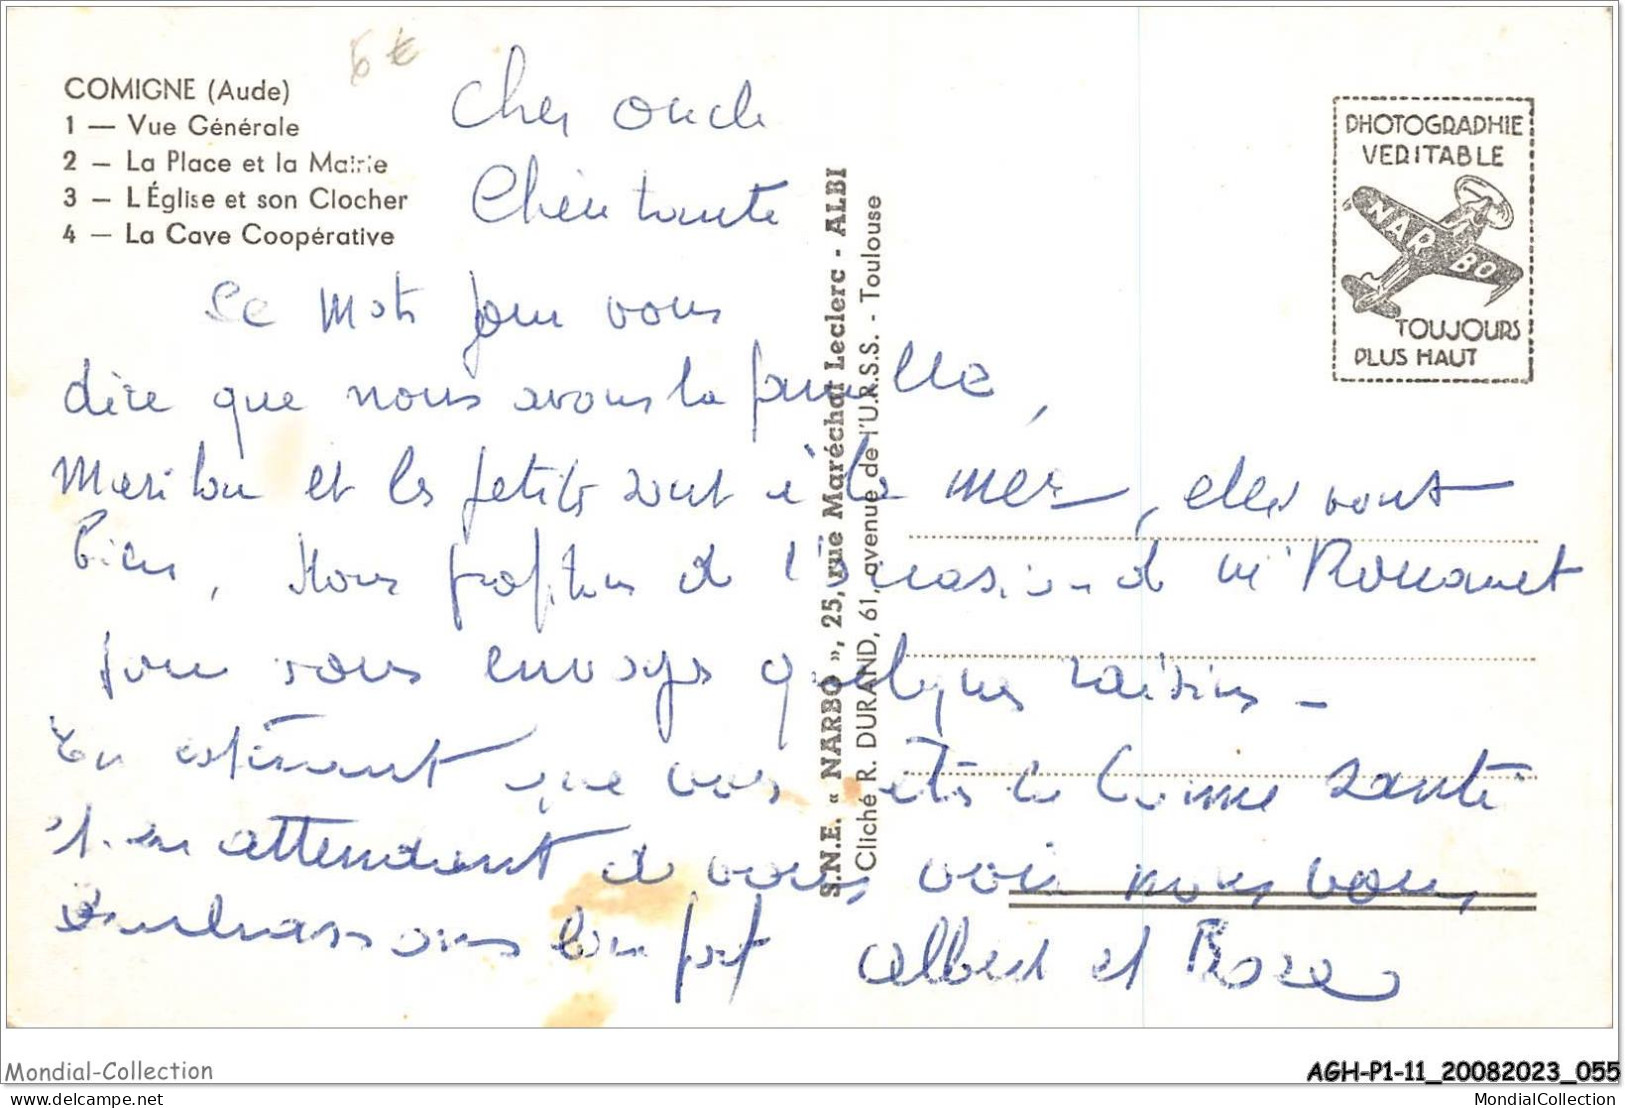 6 €
COMIGNE (Aude)
1 — Vue Générale
2 — La Place et la Mairie
3 — L'Église et son Clocher
4 — La Cave Coopérative
Cher oncle
Chère tante
Ce mot pour vous
dire que nous avons la famille,
Marilou et les petites sont à la mer, elles vont
bien, Nous profitons de l'occasion de Mr Rouanet
pour vous envoyer quelques raisins –
En espérant que vous êtes en bonne santé
et en attendant de vous voir nous vous
embrassons bien fort Albert et Rose
S.N.E. « NARBO », 25, rue Maréchal Leclerc - ALBI
Cliché R. DURAND, 61, avenue de l'U.R.S.S. - Toulouse
PHOTOGRAPHIE
VERITABLE
NARBO
TOUJOURS
PLUS HAUT
Mondial-Collection
AGH-P1-11_20082023_055
delcampe.net
MondialCollection